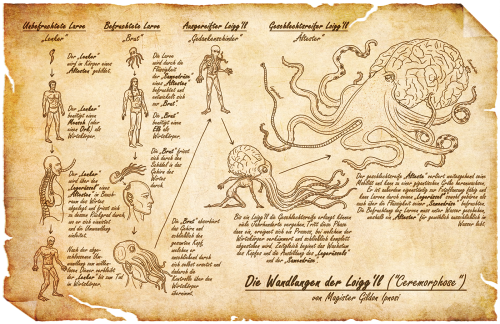 Unbefruchtete Larve
„Lenker"
Befruchtete Larve
„Brut"
Ausgereifter Loigg'Il
„Gedankenschinder"
Geschlechtsreifer Loigg'Il
„Ältester"
Der „Lenker"
wird im Körper eines
„Ältesten" gebildet.
Der „Lenker"
benötigt einen
Mensch (oder
einen Ork) als
Wirtskörper.
Der „Lenker"
wird über den
„Legerüssel" eines
„Ältesten" im
des Wirtes
abgelegt und frisst sich
zu dessen Rückgrad durch,
an er sich einnistet
und die Umwandlung
einleitet.
Nach der abge-
schlossenen Um-
wandlung von mehrer-
Dauer verbleibt
der „Lenker" bis zum Tod
im Wirtskörper.
Die Larve
wird durch die
Flüssigkeit
der
eines „Ältesten"
befruchtet und
entwickelt sich
zur „Brut".
Die „Brut"
benötigt einen
Elb als
Wirtskörper.
Die „Brut" frisst
sich durch den
Schädel in das
Gehirn des
Wirtes
durch.
Die „Brut" absorbiert
das Gehirn und
schließlich den
gesamten Kopf,
welcher er
anschließend durch
sich selbst ersetzt und
dadurch die
Kontrolle über den
Wirtskörper
übernimmt.
Bis ein Loigg'Il die Geschlechtsreife erlangt können
viele Jahrhunderte vergehen. Tritt diese Phase
dann ein, ereignet sich ein Prozess, bei welchem der
Wirtskörper verkümmert und schließlich komplett
abgestoßen wird. Zeitgleich beginnt das Wachstum
des Kopfes und die Ausbildung des „Legerüssels"
und der
Der geschlechtsreife „Älteste" verliert weitestgehend seine
Mobilität und kann zu einer gigantischen Größe heranwachsen.
Er ist außerdem eigenständig zur Fortpflanzung fähig und
kann Larven durch einen „Legerüssel" sowohl gebären als
auch über die Flüssigkeit seiner befruchten.
Die Befruchtung der Larven muss unter Wasser geschehen,
weshalb ein „Ältester" für gewöhnlich ausschließlich im
Wasser lebt.
Die Wandlungen der Loigg'Il („Ceremorphose")
von Magister Gilden Ipnosi